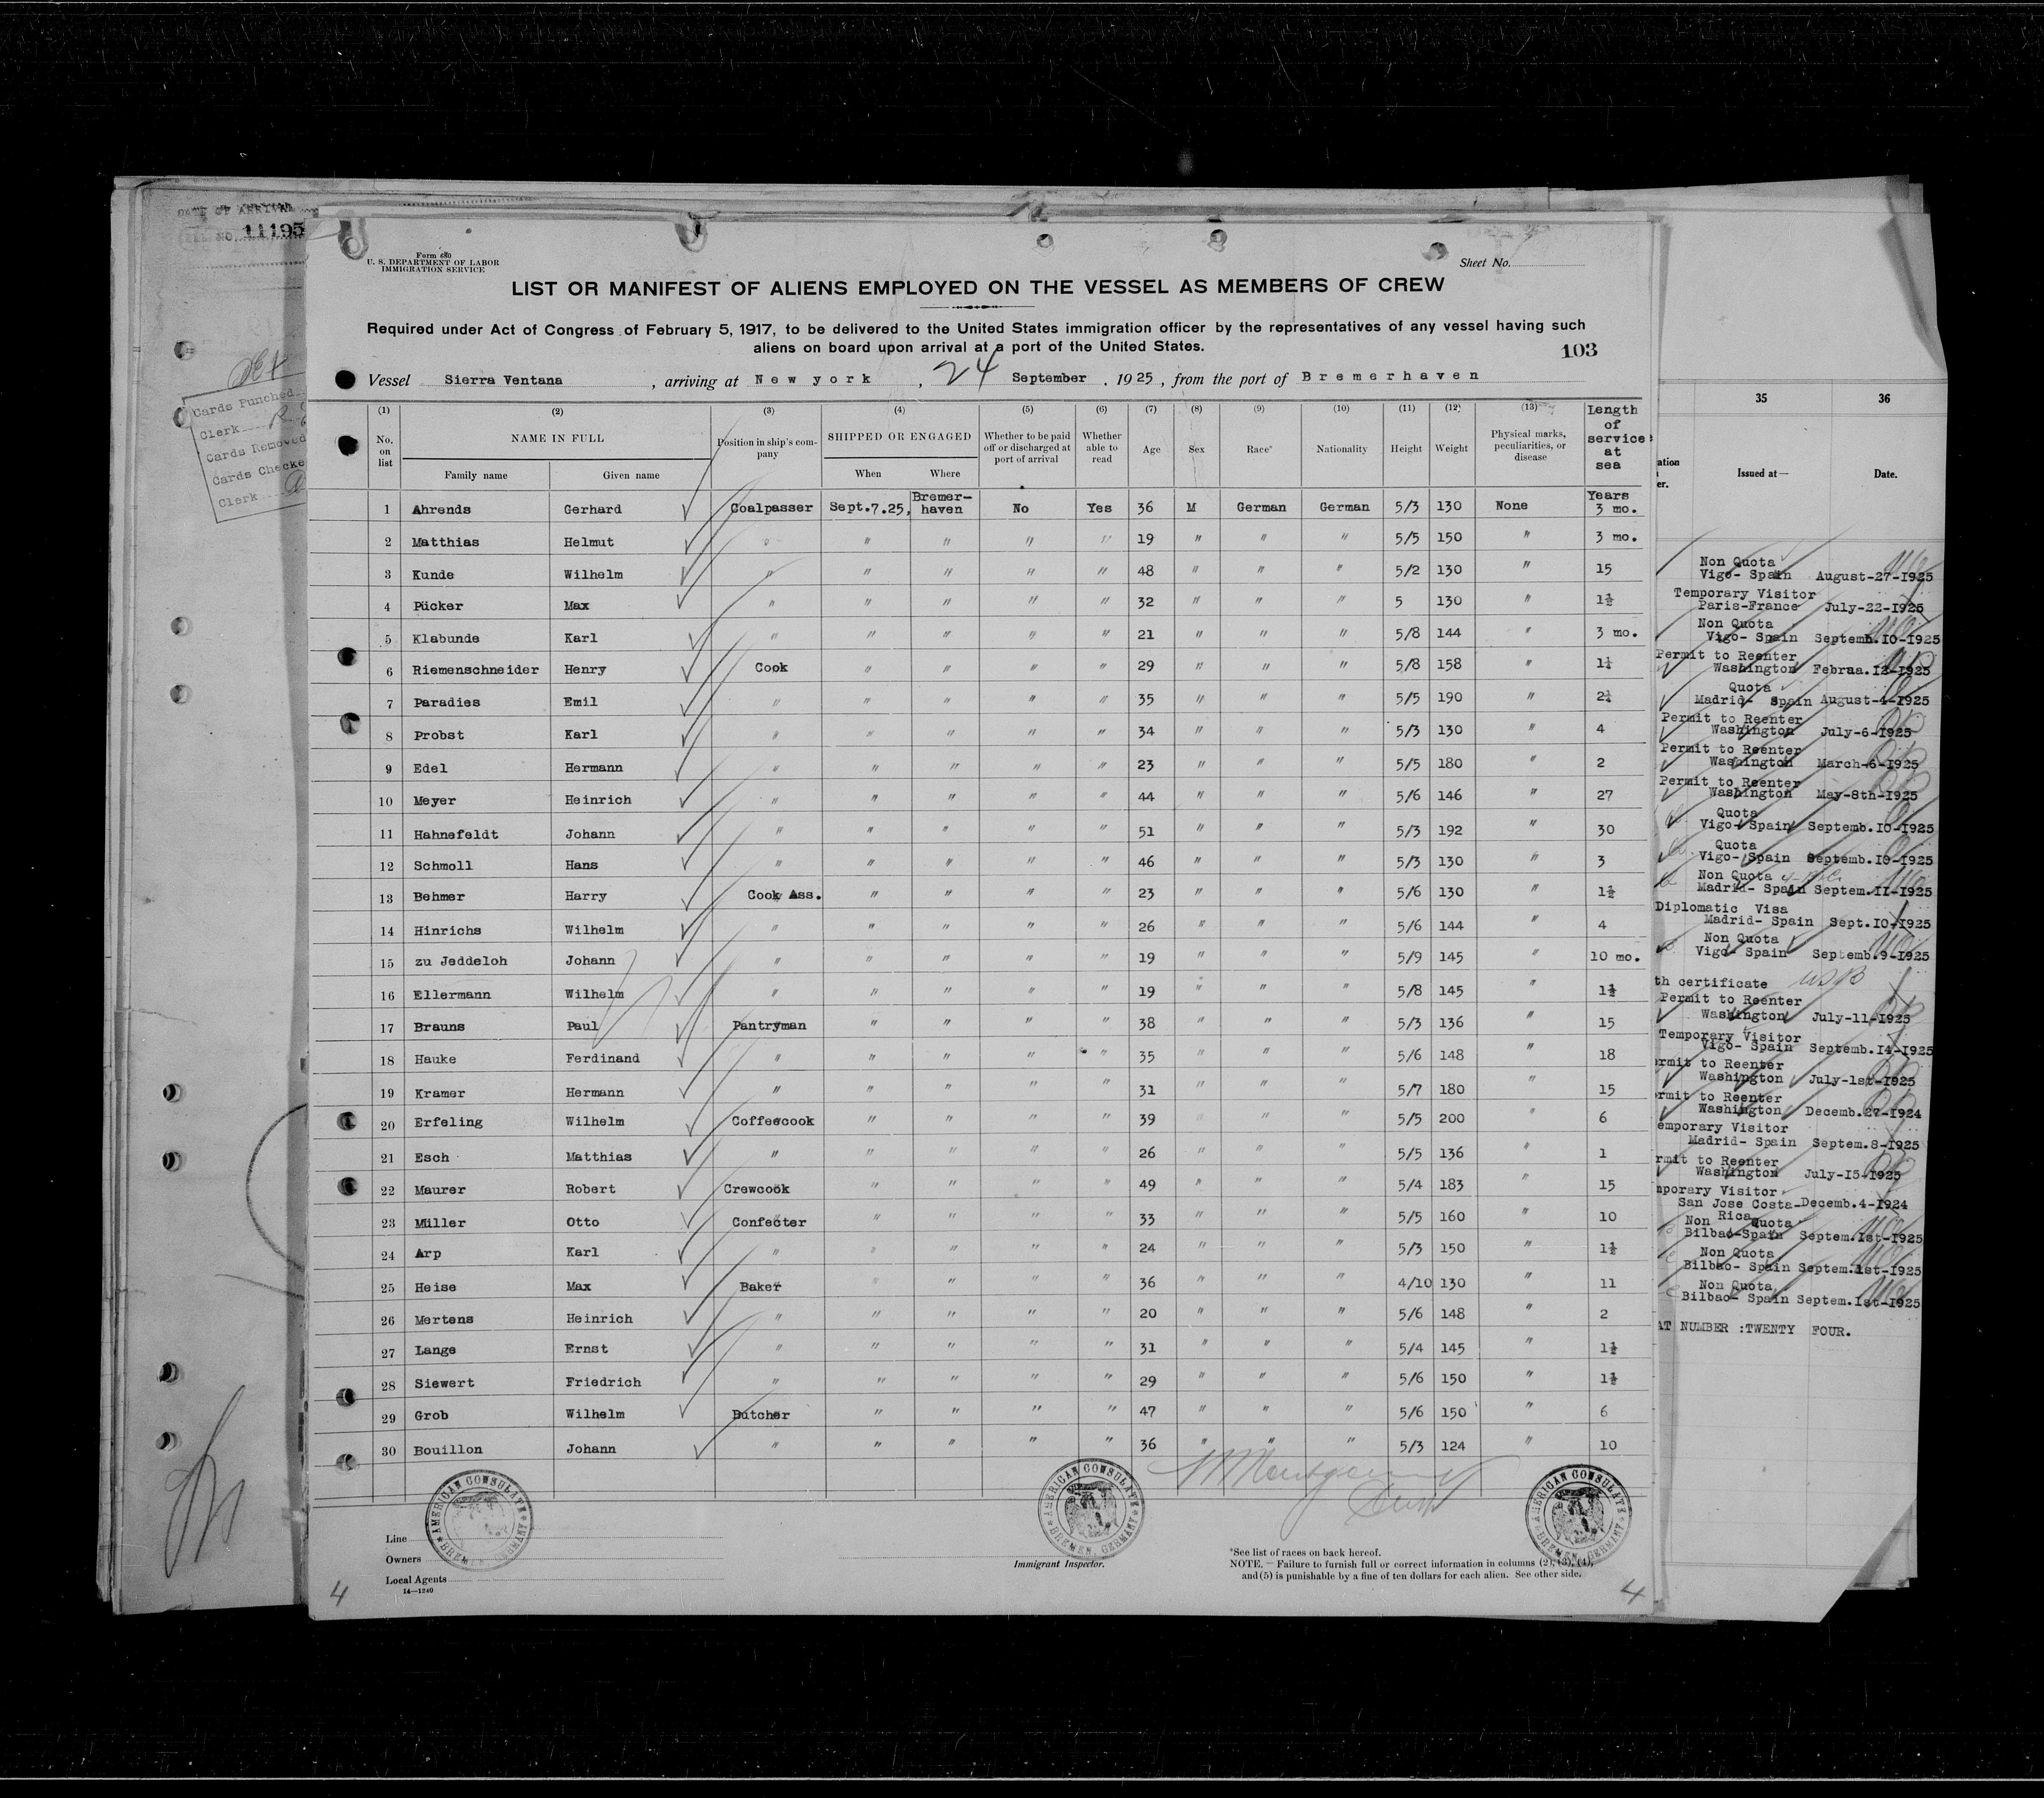 DATE OF ARRIVAL
NO. 11195
Cards Punched
Clerk
Cards Removed
Cards Checke
Clerk
Form 680
U. S. DEPARTMENT OF LABOR
IMMIGRATION SERVICE
Sheet No.
LIST OR MANIFEST OF ALIENS EMPLOYED ON THE VESSEL AS MEMBERS OF CREW
Required under Act of Congress of February 5, 1917, to be delivered to the United States immigration officer by the representatives of any vessel having such
aliens on board upon arrival at a port of the United States.
103
Vessel Sierra Ventana, arriving at New york, 24 September, 1925, from the port of Bremerhaven
(1) (2) (3) (4) (5) (6) (7) (8) (9) (10) (11) (12) (13) Length of service at sea
No. on list NAME IN FULL Position in ship's company SHIPPED OR ENGAGED Whether to be paid off or discharged at port of arrival Whether able to read Age Sex Race* Nationality Height Weight Physical marks, peculiarities, or disease
Family name Given name When Where
1 Ahrends Gerhard Coalpasser Sept.7.25, Bremerhaven No Yes 36 M German German 5/3 130 None Years 3 mo.
2 Matthias Helmut " " " " " 19 " " " 5/5 150 " 3 mo.
3 Kunde Wilhelm " " " " " 48 " " " 5/2 130 " 15
4 Pücker Max " " " " " 32 " " " 5 130 " 1½
5 Klabunde Karl " " " " " 21 " " " 5/8 144 " 3 mo.
6 Riemenschneider Henry Cook " " " " 29 " " " 5/8 158 " 1¼
7 Paradies Emil " " " " " 35 " " " 5/5 190 " 2¼
8 Probst Karl " " " " " 34 " " " 5/3 130 " 4
9 Edel Hermann " " " " " 23 " " " 5/5 180 " 2
10 Meyer Heinrich " " " " " 44 " " " 5/6 146 " 27
11 Hahnefeldt Johann " " " " " 51 " " " 5/3 192 " 30
12 Schmoll Hans " " " " " 46 " " " 5/3 130 " 3
13 Behmer Harry Cook Ass. " " " " 23 " " " 5/6 130 " 1½
14 Hinrichs Wilhelm " " " " " 26 " " " 5/6 144 " 4
15 zu Jeddeloh Johann " " " " " 19 " " " 5/9 145 " 10 mo.
16 Ellermann Wilhelm " " " " " 19 " " " 5/8 145 " 1½
17 Brauns Paul Pantryman " " " " 38 " " " 5/3 136 " 15
18 Hauke Ferdinand " " " " " 35 " " " 5/6 148 " 18
19 Kramer Hermann " " " " " 31 " " " 5/7 180 " 15
20 Erfeling Wilhelm Coffeecook " " " " 39 " " " 5/5 200 " 6
21 Esch Matthias " " " " " 26 " " " 5/5 136 " 1
22 Maurer Robert Crewcook " " " " 49 " " " 5/4 183 " 15
23 Müller Otto Confecter " " " " 33 " " " 5/5 160 " 10
24 Arp Karl " " " " " 24 " " " 5/3 150 " 1½
25 Heise Max Baker " " " " 36 " " " 4/10 130 " 11
26 Mertens Heinrich " " " " " 20 " " " 5/6 148 " 2
27 Lange Ernst " " " " " 31 " " " 5/4 145 " 1½
28 Siewert Friedrich " " " " " 29 " " " 5/6 150 " 1½
29 Grob Wilhelm Butcher " " " " 47 " " " 5/6 150 " 6
30 Bouillon Johann " " " " " 36 " " " 5/3 124 " 10
AMERICAN CONSULATE BREMEN, GERMANY
AMERICAN CONSULATE BREMEN, GERMANY
AMERICAN CONSULATE BREMEN, GERMANY
Line
Owners
Local Agents
14—1240
Immigrant Inspector.
*See list of races on back hereof.
NOTE.—Failure to furnish full or correct information in columns (2), (3), (4),
and (5) is punishable by a fine of ten dollars for each alien. See other side.
4
4
35 36
ation
er.
Issued at— Date.
Non Quota
Vigo- Spain August-27-1925
Temporary Visitor
Paris-France July-22-1925
Non Quota
Vigo- Spain Septemb.10-1925
Permit to Reenter
Washington Februa.12-1925
Quota
Madrid- Spain August-4-1925
Permit to Reenter
Washington July-6-1925
Permit to Reenter
Washington March-6-1925
Permit to Reenter
Washington May-8th-1925
Quota
Vigo- Spain Septemb.10-1925
Quota
Vigo- Spain Septemb.10-1925
Non Quota
Madrid- Spain Septem.11-1925
Diplomatic Visa
Madrid- Spain Sept.10-1925
Non Quota
Vigo- Spain Septemb.9-1925
th certificate USB
Permit to Reenter
Washington July-11-1925
Temporary Visitor
Vigo- Spain Septemb.14-1925
ermit to Reenter
Washington July-1st-1925
ermit to Reenter
Washington Decemb.27-1924
emporary Visitor
Madrid- Spain Septem.8-1925
rmit to Reenter
Washington July-15-1925
mporary Visitor
San Jose Costa- Decemb.4-1924
Rica
Non Quota
Bilbao-Spain Septem.1st-1925
Non Quota
Bilbao- Spain Septem.1st-1925
Non Quota
Bilbao- Spain Septem.1st-1925
AT NUMBER :TWENTY FOUR.